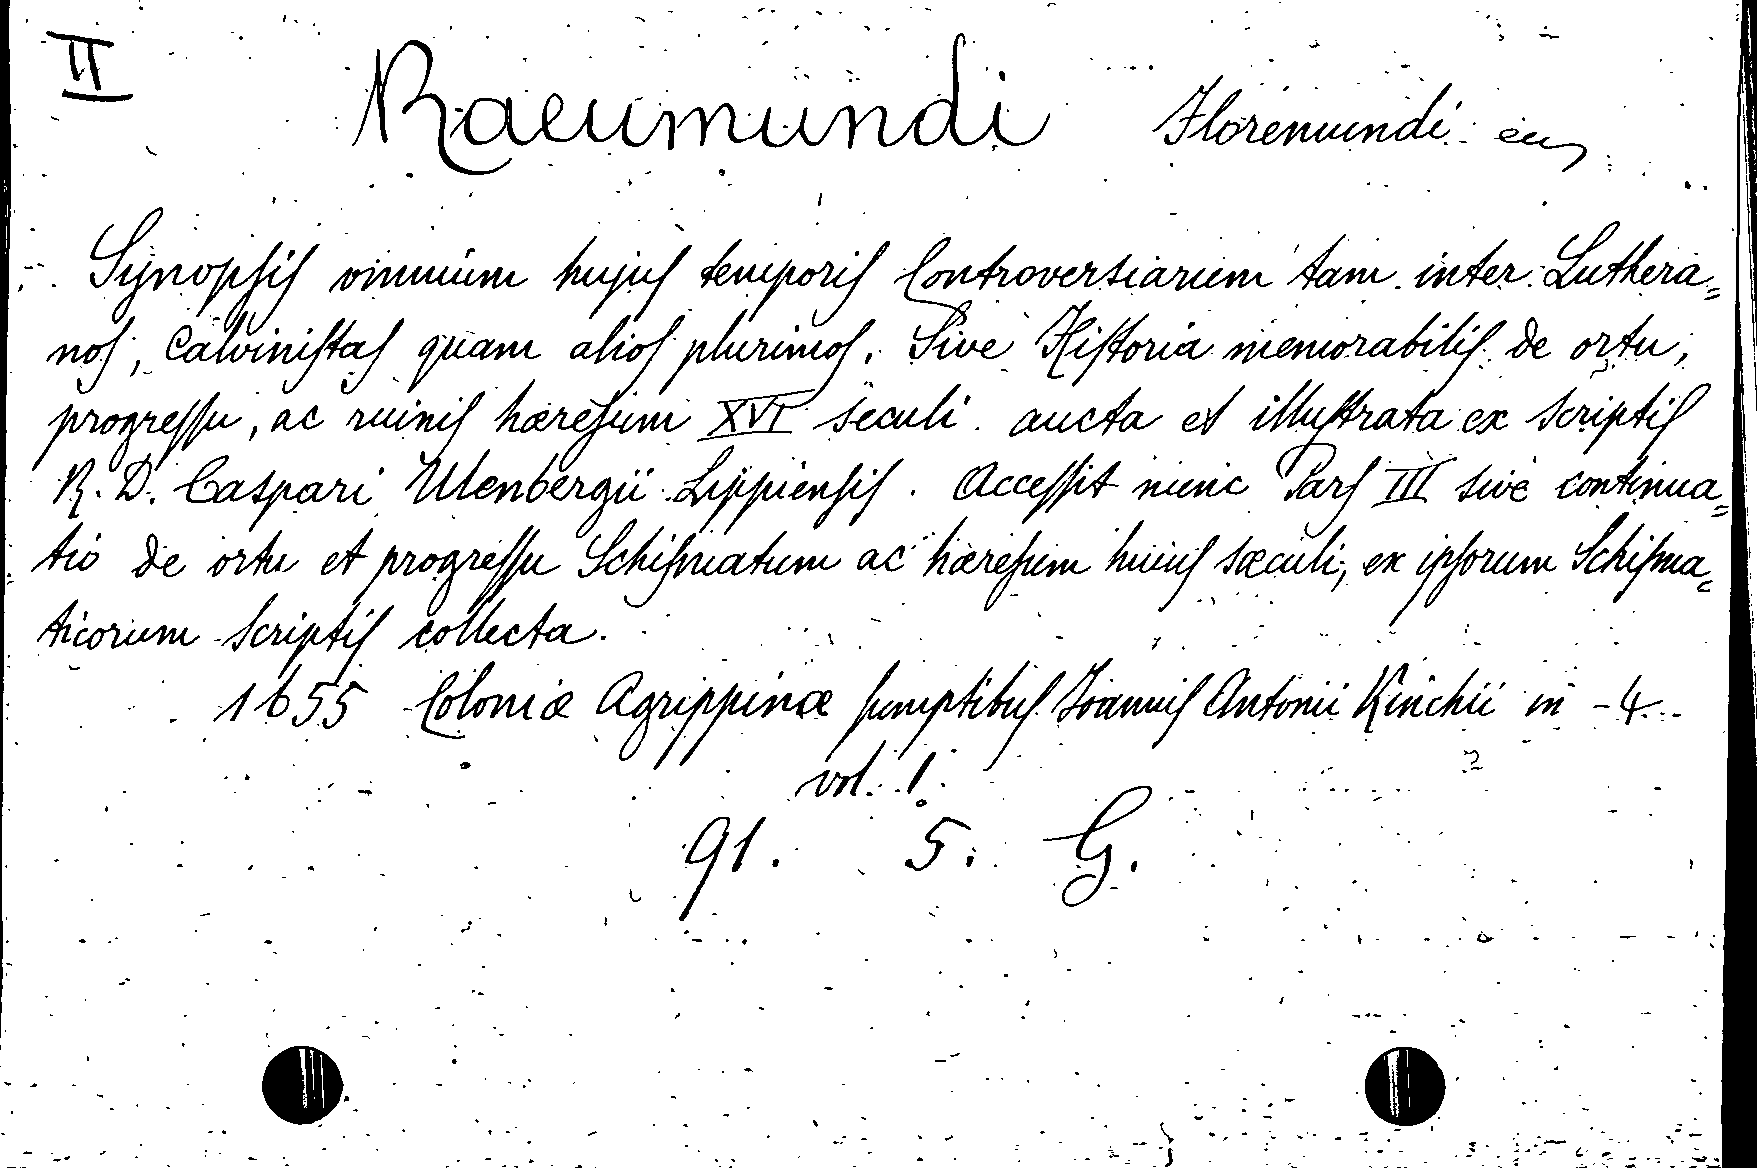 II
Raeumundi Floremundi
Synopsis omnium hujus temporis Controversiarum tam inter Luthera=
nos, Calvinistas quam alios plurimos. Sive Historia memorabilis de ortu,
progressu, ac ruinis hæresum XVI seculi. aucta et illustrata ex scriptis
R. D. Caspari Ulenbergii Lippiensis. Accessit nunc Pars III sive continua=
tio de ortu et progressu Schismatum ac hæresum huius sæculi, ex ipsorum Schisma=
ticorum scriptis collecta.
1655 Coloniæ Agrippinæ sumptibus Joannis Antonii Kinchii in -4
vol. 1.
91. 5. G.